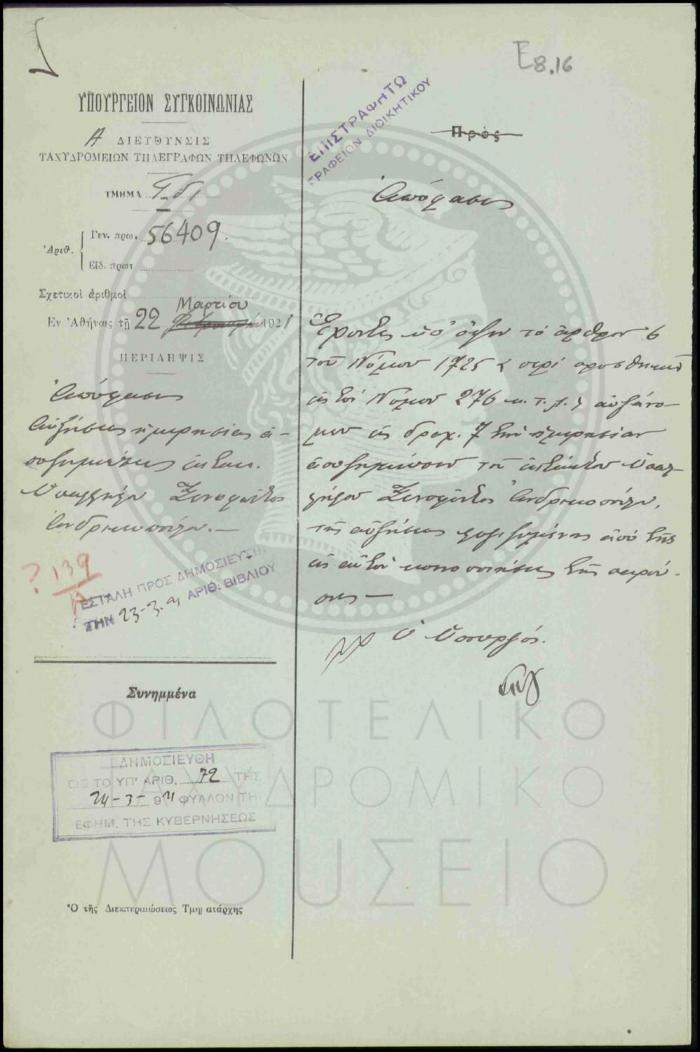 E8.16
ΥΠΟΥΡΓΕΙΟΝ ΣΥΓΚΟΙΝΩΝΙΑΣ
Α ΔΙΕΥΘΥΝΣΙΣ
ΤΑΧΥΔΡΟΜΕΙΩΝ ΤΗΛΕΓΡΑΦΩΝ ΤΗΛΕΦΩΝΩΝ
ΤΜΗΜΑ
Ἀριθ.
Γεν. πρωτ. 56409.
Εἰδ. πρωτ
Σχετικοὶ ἀριθμοί
Μαρτίου
Ἐν Ἀθήναις τῇ 22 1921
ΠΕΡΙΛΗΨΙΣ
Ἀπόφασις
Αὐξήσεως ἡμερησίας ἀ-
ποζημιώσεως ἐκτακ.
Ὑπαλλήλου Ξενοφῶντος
Ἀνδρικοπούλου.—
? 139
ΕΣΤΑΛΗ ΠΡΟΣ ΔΗΜΟΣΙΕΥΣΙΝ
ΤΗΝ 23-3- ΑΡΙΘ. ΒΙΒΛΙΟΥ
Συνημμένα
ΔΗΜΟΣΙΕΥΘΗ
ΕΙΣ ΤΟ ΥΠ' ΑΡΙΘ. 72 ΤΗΣ
24-3-921 ΦΥΛΛΟΝ ΤΗΣ
ΕΦΗΜ. ΤΗΣ ΚΥΒΕΡΝΗΣΕΩΣ
Ὁ τῆς Διεκπεραιώσεως Τμηματάρχης
ΕΠΙΣΤΡΑΦΗΤΩ
ΓΡΑΦΕΙΟΝ ΔΙΟΙΚΗΤΙΚΟΥ
Πρὸς
Ἀπόφασις
Ἔχοντες ὑπ' ὄψιν τὸ ἄρθρον 6
τοῦ Νόμου 1725 περὶ προσθήκης
εἰς τὸν Νόμον 276 κ.τ.λ. αὐξάνο-
μεν εἰς δραχ. 7 τὴν ἡμερησίαν
ἀποζημίωσιν τοῦ ἐκτάκτου Ὑπαλ-
λήλου Ξενοφῶντος Ἀνδρικοπούλου,
τῆς αὐξήσεως λογιζομένης ἀπὸ τῆς
εἰς αὐτὸν κοινοποιήσεως τῆς παρού-
σης—
Ὁ Ὑπουργός.
ΦΙΛΟΤΕΛΙΚΟ
ΤΑΧΥΔΡΟΜΙΚΟ
ΜΟΥΣΕΙΟ